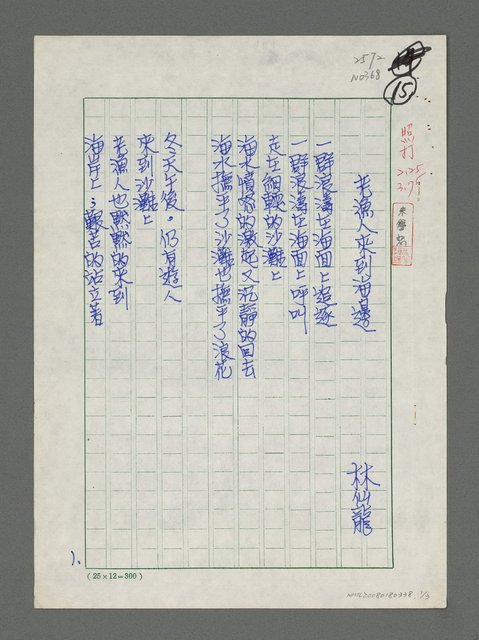 2572
N0368
15
照打
老漁人來到海邊
林仙龍
一群浪濤在海面上追逐
一群浪濤在海面上呼叫
走在細軟的沙灘上
海水憤怒的激起又沉靜的回去
海水撫平了沙灘也撫平了浪花
冬天午後。仍有遊人
來到沙灘上
老漁人也默默的來到
海岸上；艱苦的站立著
1.
(25×12=300)
NMTL20080180338 1/3